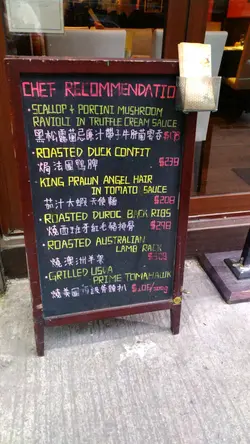 CHEF RECOMMENDATIO
• SCALLOP & PORCINI MUSHROOM
RAVIOLI IN TRUFFLE CREAM SAUCE
黑松露茄忌廉汁帶子牛肝菌 $178
• ROASTED DUCK CONFIT
焗法國鴨脾 $238
• KING PRAWN ANGEL HAIR
IN TOMATO SAUCE
茄汁大蝦天使麵 $208
• ROASTED DUROC BACK RIBS
燒西班牙紅毛豬排骨 $298
• ROASTED AUSTRALIAN
LAMB RACK
燒澳洲羊架
• GRILLED USDA
PRIME TOMAHAWK
燒美國